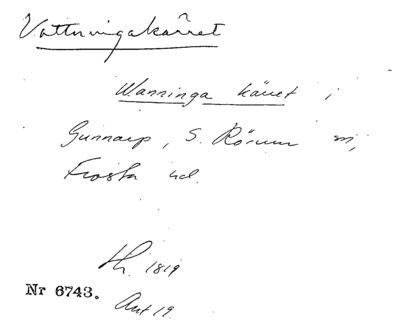 Vattningakärret
Wanninga käret i
Gunnarp, S. Rörum sn,
Frosta hd.
Lh. 1819
Nr 6743.
Akt 19.